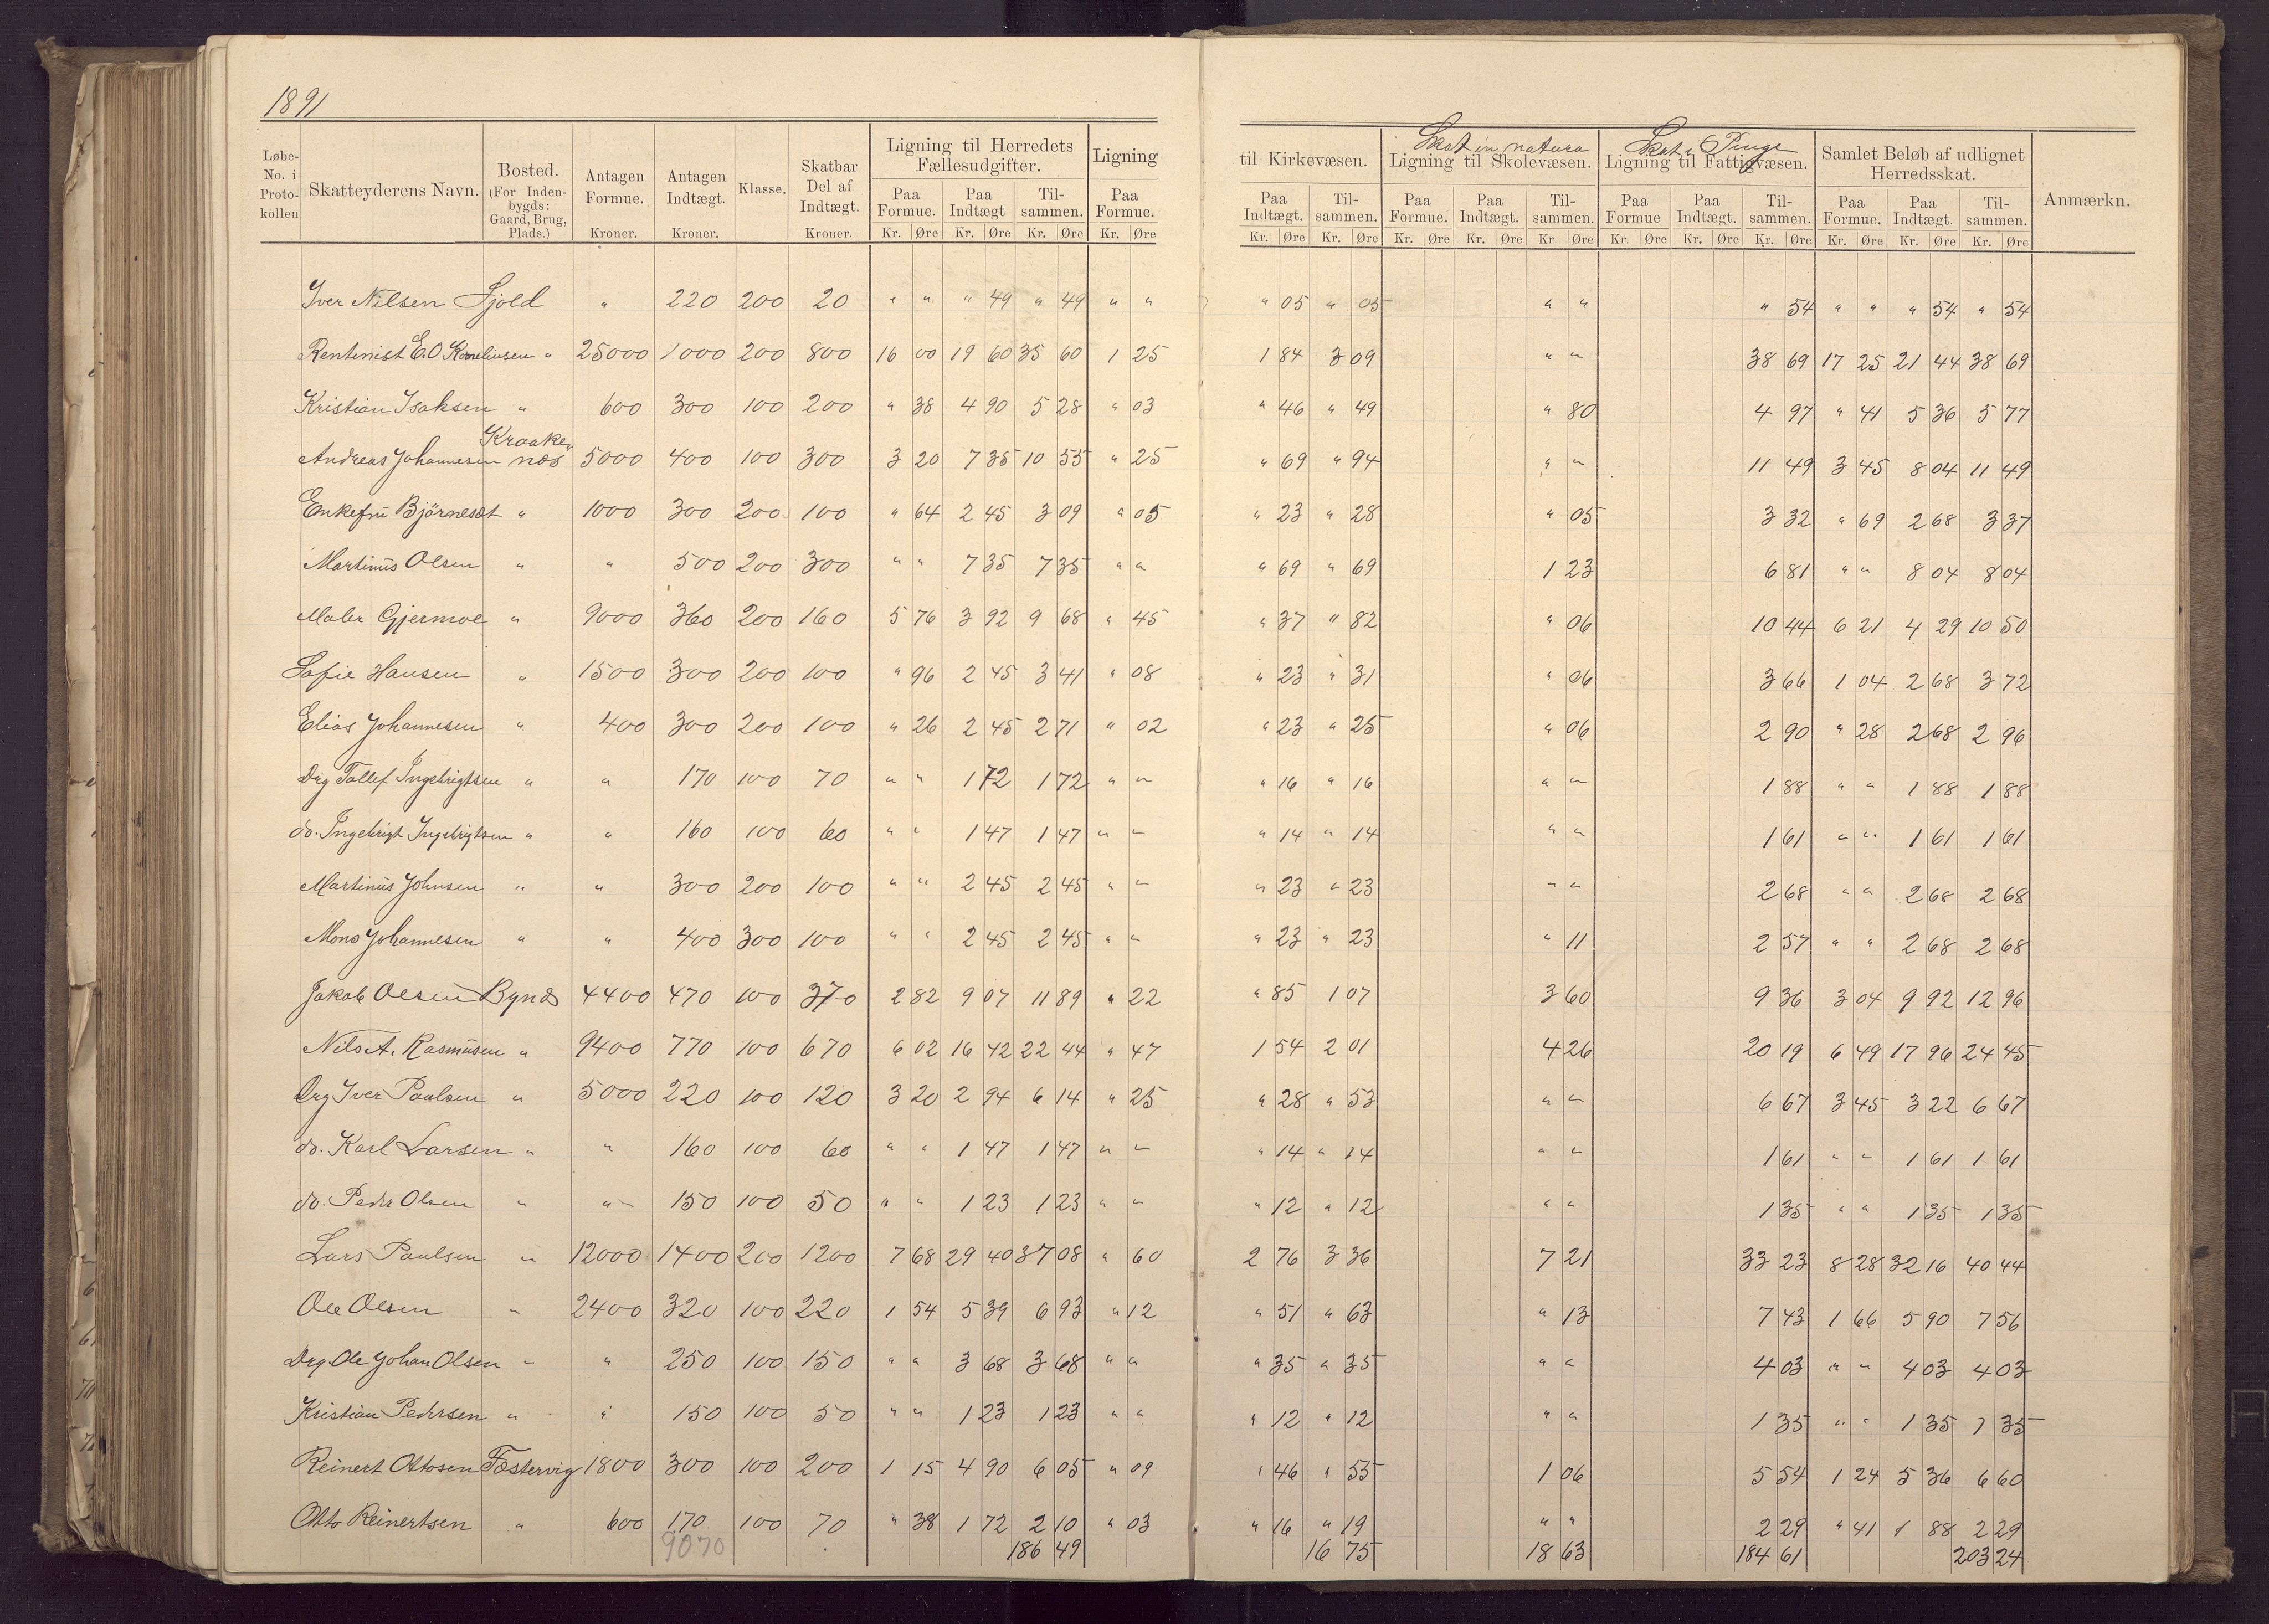 1891
Løbe-No. i Protokollen | Skatteyderens Navn. | Bosted. (For Indenbygds: Gaard, Brug, Plads.) | Antagen Formue. Kroner. | Antagen Indtægt. Kroner. | Klasse. | Skatbar Del af Indtægt. Kroner. | Ligning til Herredets Fællesudgifter. Paa Formue. Kr. Øre | Paa Indtægt Kr. Øre | Tilsammen. Kr. Øre | Ligning Paa Formue. Kr. Øre | til Kirkevæsen. Paa Indtægt. Kr. Øre | Tilsammen. Kr. Øre | Skat in natura Ligning til Skolevæsen. Paa Formue. Kr. Øre | Paa Indtægt. Kr. Øre | Tilsammen. Kr Øre | Skat i Penge Ligning til Fattigvæsen. Paa Formue Kr. Øre | Paa Indtægt. Kr. Øre | Tilsammen. Kr. Øre | Samlet Beløb af udlignet Herredsskat. Paa Formue. Kr. Øre | Paa Indtægt. Kr. Øre | Tilsammen. Kr. Øre | Anmærkn.
Iver Nilsen Fjold " 220 200 20 " " " 49 " 49 " " " 05 " 05 " " " 54 " " " 54 " 54
Rentenist E.O Korneliusen " 25000 1000 200 800 16 00 19 60 35 60 1 25 1 84 3 09 " " 38 69 17 25 21 44 38 69
Kristian Isaksen " 600 300 100 200 " 38 4 90 5 28 " 03 " 46 " 49 " 80 4 97 " 41 5 36 5 77
Andreas Johannesen Kraakenæs 5000 400 100 300 3 20 7 35 10 55 " 25 " 69 " 94 " " 11 49 3 45 8 04 11 49
Enkefru Björnesæt " 1000 300 200 100 " 64 2 45 3 09 " 05 " 23 " 28 " 05 3 32 " 69 2 68 3 37
Martinus Olsen " " 500 200 300 " " 7 35 7 35 " " " 69 " 69 1 23 6 81 " " 8 04 8 04
Maler Gjermoe " 9000 360 200 160 5 76 3 92 9 68 " 45 " 37 " 82 " 06 10 44 6 21 4 29 10 50
Sofie Hansen " 1500 300 200 100 " 96 2 45 3 41 " 08 " 23 " 31 " 06 3 66 1 04 2 68 3 72
Elias Johannesen " 400 300 200 100 " 26 2 45 2 71 " 02 " 23 " 25 " 06 2 90 " 28 2 68 2 96
Drg Tollef Ingebrigtsen " " 170 100 70 " " 1 72 1 72 " " " 16 " 16 " " 1 88 " " 1 88 1 88
do. Ingebrigt Ingebrigtsen " " 160 100 60 " " 1 47 1 47 " " " 14 " 14 " " 1 61 " " 1 61 1 61
Martinus Johnsen " " 300 200 100 " " 2 45 2 45 " " " 23 " 23 " " 2 68 " " 2 68 2 68
Mons Johannesen " " 400 300 100 " " 2 45 2 45 " " " 23 " 23 " 11 2 57 " " 2 68 2 68
Jakob Olsen Bynæs 4400 470 100 370 2 82 9 07 11 89 " 22 " 85 1 07 3 60 9 36 3 04 9 92 12 96
Nils A. Rasmusen " 9400 770 100 670 6 02 16 42 22 44 " 47 1 54 2 01 4 26 20 19 6 49 17 96 24 45
Drg Iver Paulsen " 5000 220 100 120 3 20 2 94 6 14 " 25 " 28 " 53 " " 6 67 3 45 3 22 6 67
do. Karl Larsen " " 160 100 60 " " 1 47 1 47 " " " 14 " 14 " " 1 61 " " 1 61 1 61
do. Peder Olsen " " 150 100 50 " " 1 23 1 23 " " " 12 " 12 " " 1 35 " " 1 35 1 35
Lars Paulsen " 12000 1400 200 1200 7 68 29 40 37 08 " 60 2 76 3 36 7 21 33 23 8 28 32 16 40 44
Ole Olsen " 2400 320 100 220 1 54 5 39 6 93 " 12 " 51 " 63 " 13 7 43 1 66 5 90 7 56
Drg. Ole Johan Olsen " " 250 100 150 " " 3 68 3 68 " " " 35 " 35 " " 4 03 " " 4 03 4 03
Kristian Pedersen " " 150 100 50 " " 1 23 1 23 " " " 12 " 12 " " 1 35 " " 1 35 1 35
Reinert Ottosen Fostervig 1800 300 100 200 1 15 4 90 6 05 " 09 " 46 " 55 1 06 5 54 1 24 5 36 6 60
Otto Reinertsen " 600 170 100 70 " 38 1 72 2 10 " 03 " 16 " 19 " " 2 29 " 41 1 88 2 29
9070 186 49 16 75 18 63 184 61 203 24